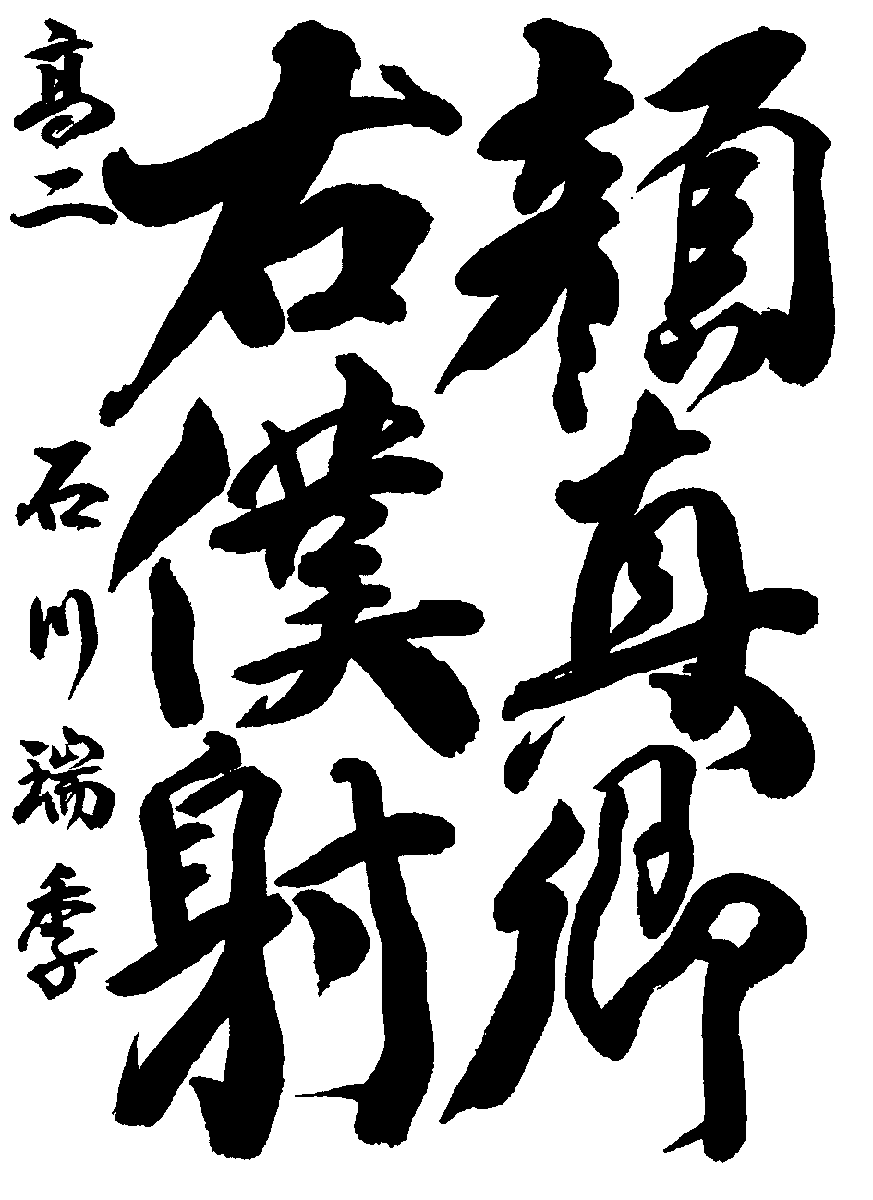 顔真卿
右僕射
高二 石川瑞季